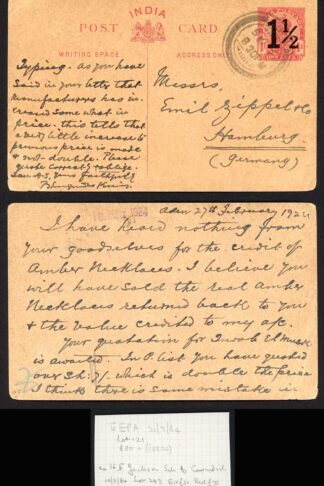 INDIA
POST CARD
WRITING SPACE
ADDRESS ONLY
1½
Typing. As you have
said in your letter that
manufacturers has in-
creased some what in
price. this tells that
a very little increase to
previous price is made
& not double. Please
quote correctly & oblige
Yours faithfully
Messrs,
Emil Zippel & Co
Hamburg
(Germany)
Aden 27th February 1924
I have heard nothing from
your goodselves for the credit of
Amber Necklaces. I believe you
will have sold the real Amber
Necklaces returned back to you
& the value credited to my a/c.
Your quotation for
is awaited. In P. list you have quoted
over Sh: 7/. which is double the price
I think there is some mistake in
EEPA
Lot